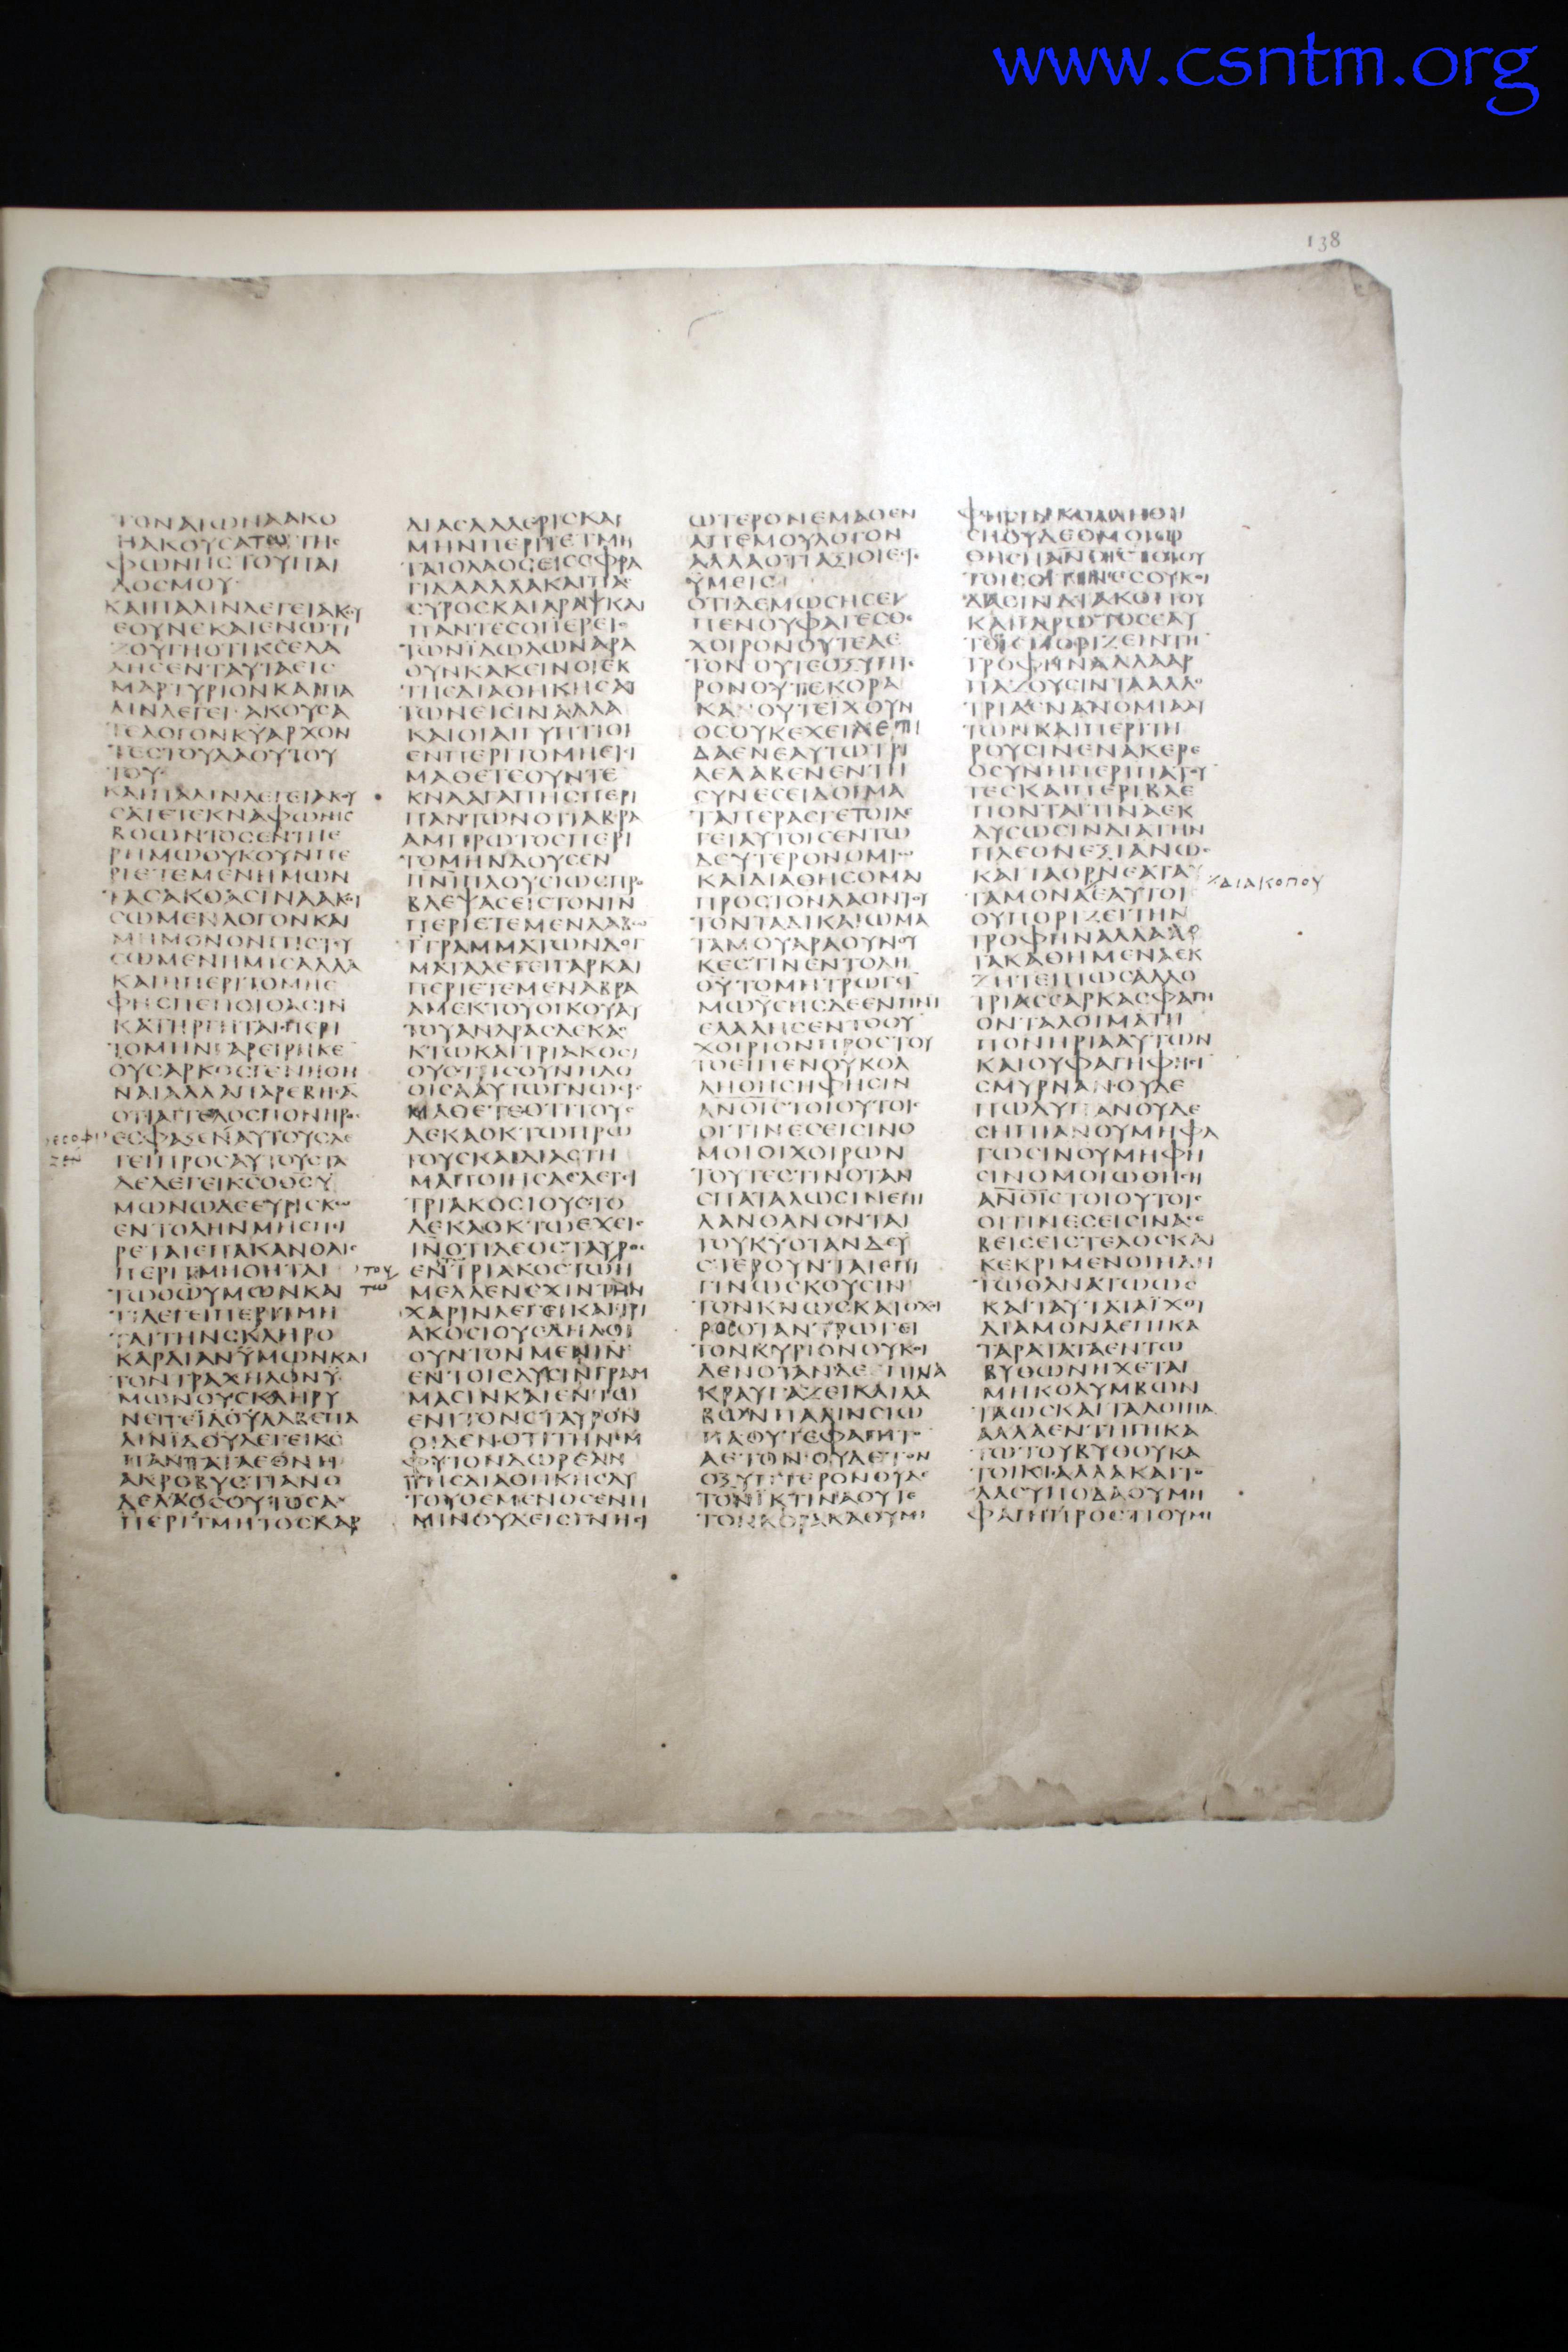 www.csntm.org
138
ΤΟΝΑΙΩΝΑΑΚΟ
ΗΑΚΟΥϹΑΤΩΤΗϹ
ΦΩΝΗϹΤΟΥΠΑΙ
ΔΟϹΜΟΥ
ΚΑΙΠΑΛΙΝΛΕΓΕΙΑΚΟΥ
ΕΟΥΝΕΚΑΙΕΝΩΤΙ
ΖΟΥΓΗΟΤΙΚϹΕΛΑ
ΛΗϹΕΝΤΑΥΤΑΕΙϹ
ΜΑΡΤΥΡΙΟΝΚΑΙΠΑ
ΛΙΝΛΕΓΕΙΑΚΟΥϹΑ
ΤΕΛΟΓΟΝΚΥΑΡΧΟΝ
ΤΕϹΤΟΥΛΑΟΥΤΟΥ
ΤΟΥ
ΚΑΙΠΑΛΙΝΛΕΓΕΙΑΚΟΥ
ϹΑΤΕΤΕΚΝΑΦΩΝΗϹ
ΒΟΩΝΤΟϹΕΝΤΗΕ
ΡΗΜΩΟΥΚΟΥΝΠΕ
ΡΙΕΤΕΜΕΝΗΜΩΝ
ΤΑϹΑΚΟΑϹΙΝΑΑΚΟΥ
ϹΩΜΕΝΛΟΓΟΝΚΑΙ
ΜΗΜΟΝΟΝΠΙϹΤΕΥ
ϹΩΜΕΝΗΜΙϹΑΛΛΑ
ΚΑΙΗΠΕΡΙΤΟΜΗΕ
ΦΗϹΠΕΠΟΙΘΑϹΙΝ
ΚΑΤΗΡΓΗΤΑΙΠΕΡΙ
ΤΟΜΗΝΓΑΡΕΙΡΗΚΕ
ΟΥϹΑΡΚΟϹΓΕΝΗΘΗ
ΝΑΙΑΛΛΑΠΑΡΕΒΗϹΑ
ΟΤΙΑΓΓΕΛΟϹΠΟΝΗΡΟϹ
ΕϹΦΑΞΕΝΑΥΤΟΥϹΛΕ
ΓΕΙΠΡΟϹΑΥΤΟΥϹΤΑ
ΔΕΛΕΓΕΙΚϹΟΘϹΥ
ΜΩΝΩΔΕΕΥΡΙϹΚΩ
ΕΝΤΟΛΗΝΜΗϹΠΙ
ΡΕΤΑΙΕΠΑΚΑΝΘΑΙϹ
ΠΕΡΙΤΜΗΘΗΤΑΙ
ΤΩΘΩΥΜΩΝΚΑΙ
ΤΙΛΕΓΕΙΠΕΡΙΤΜΗ
ΤΑΙΤΗΝϹΚΛΗΡΟ
ΚΑΡΔΙΑΝΥΜΩΝΚΑΙ
ΤΟΝΤΡΑΧΗΛΟΝΥ
ΜΩΝΟΥϹΚΛΗΡΥ
ΝΕΙΤΕΙΔΟΥΛΑΒΕΠΑ
ΛΙΝΙΔΟΥΛΕΓΕΙΚϹ
ΠΑΝΤΑΤΑΕΘΝΗ
ΑΚΡΟΒΥϹΤΙΑΝΟ
ΔΕΛΑΟϹΟΥΤΟϹΑ
ΠΕΡΙΤΜΗΤΟϹΚΑΡ
ΤΟΥ
ΤΩ
ΔΙΑϹΑΛΛΕΡΙϹΚΑΙ
ΜΗΝΠΕΡΙΤΕΤΜΗ
ΤΑΙΟΛΑΟϹΕΙϹϹΦΡΑ
ΓΙΔΑΑΛΛΑΚΑΙΠΑϹ
ϹΥΡΟϹΚΑΙΑΡΑΨΚΑΙ
ΠΑΝΤΕϹΟΙΙΕΡΕΙϹ
ΤΩΝΙΔΩΛΩΝΑΡΑ
ΟΥΝΚΑΚΕΙΝΟΙΕΚ
ΤΗϹΔΙΑΘΗΚΗϹΑΥ
ΤΩΝΕΙϹΙΝΑΛΛΑ
ΚΑΙΟΙΑΙΓΥΠΤΙΟΙ
ΕΝΠΕΡΙΤΟΜΗΕΙϹΙ
ΜΑΘΕΤΕΟΥΝΤΕ
ΚΝΑΑΓΑΠΗϹΠΕΡΙ
ΠΑΝΤΩΝΟΤΙΑΒΡΑ
ΑΜΠΡΩΤΟϹΠΕΡΙ
ΤΟΜΗΝΔΟΥϹΕΝ
ΠΝΙΠΛΟΥϹΙΩϹΠΡΟ
ΒΛΕΨΑϹΕΙϹΤΟΝΙΝ
ΠΕΡΙΕΤΕΜΕΝΛΑΒΩ
ΓΓΡΑΜΜΑΤΩΝΔΟΓ
ΜΑΤΑΛΕΓΕΙΓΑΡΚΑΙ
ΠΕΡΙΕΤΕΜΕΝΑΒΡΑ
ΑΜΕΚΤΟΥΟΙΚΟΥΑΥ
ΤΟΥΑΝΔΡΑϹΔΕΚΑΟ
ΚΤΩΚΑΙΤΡΙΑΚΟϹΙ
ΟΥϹΤΙϹΟΥΝΗΔΟ
ΘΙϹΑΑΥΤΩΓΝΩϹΙϹ
ΜΑΘΕΤΕΟΤΙΤΟΥϹ
ΔΕΚΑΟΚΤΩΠΡΩ
ΤΟΥϹΚΑΙΔΙΑϹΤΗ
ΜΑΠΟΙΗϹΑϹΛΕΓΕΙ
ΤΡΙΑΚΟϹΙΟΥϹΤΟ
ΔΕΚΑΟΚΤΩΕΧΕΙϹ
ΙΝΟΤΙΔΕΟϹΤΑΥΡΟϹ
ΕΝΤΡΙΑΚΟϹΤΩΗ
ΜΕΛΛΕΝΕΧΙΝΤΗΝ
ΧΑΡΙΝΛΕΓΕΙΚΑΙΤΡΙ
ΑΚΟϹΙΟΥϹΔΗΛΟΙ
ΟΥΝΤΟΝΜΕΝΙΝ
ΕΝΤΟΙϹΔΥϹΙΝΓΡΑΜ
ΜΑϹΙΝΚΑΙΕΝΤΩ
ΕΝΙΤΟΝϹΤΑΥΡΟΝ
ΟΙΔΕΝΟΤΙΤΗΝΕΜ
ΦΥΤΟΝΔΩΡΕΑΝ
ΤΗϹΔΙΑΘΗΚΗϹΑΥ
ΤΟΥΘΕΜΕΝΟϹΕΝΗ
ΜΙΝΟΥΔΕΙϹΓΝΗϹΙ
ΩΤΕΡΟΝΕΜΑΘΕΝ
ΑΠΕΜΟΥΛΟΓΟΝ
ΑΛΛΑΟΤΙΑΞΙΟΙΕϹΤΕ
ΥΜΕΙϹ
ΟΤΙΔΕΜΩϹΗϹΕΙ
ΠΕΝΟΥΦΑΓΕϹΘΕ
ΧΟΙΡΟΝΟΥΤΕΑΕ
ΤΟΝΟΥΤΕΟΞΥΠΤΕ
ΡΟΝΟΥΤΕΚΟΡΑ
ΚΑΝΟΥΤΕΙΧΘΥΝ
ΟϹΟΥΚΕΧΕΙΛΕΠΙ
ΔΑΕΝΕΑΥΤΩΤΡΙ
ΑΕΛΑΒΕΝΕΝΤΗ
ϹΥΝΕϹΕΙΔΟΓΜΑ
ΤΑΠΕΡΑϹΓΕΤΟΙΛΕ
ΓΕΙΑΥΤΟΙϹΕΝΤΩ
ΔΕΥΤΕΡΟΝΟΜΙΩ
ΚΑΙΔΙΑΘΗϹΟΜΑΙ
ΠΡΟϹΤΟΝΛΑΟΝΤΟΥ
ΤΟΝΤΑΔΙΚΑΙΩΜΑ
ΤΑΜΟΥΑΡΑΟΥΝΟΥ
ΚΕϹΤΙΝΕΝΤΟΛΗ
ΘΥΤΟΜΗΤΡΩΓΕΙ
ΜΩΥϹΗϹΔΕΕΝΠΝΙ
ΕΛΑΛΗϹΕΝΤΟΟΥ
ΧΟΙΡΙΟΝΠΡΟϹΤΟΥ
ΤΟΕΙΠΕΝΟΥΚΟΛ
ΛΗΘΗϹΗΦΗϹΙΝ
ΑΝΟΙϹΤΟΙΟΥΤΟΙϹ
ΟΙΤΙΝΕϹΕΙϹΙΝΟ
ΜΟΙΟΙΧΟΙΡΩΝ
ΤΟΥΤΕϹΤΙΝΟΤΑΝ
ϹΠΑΤΑΛΩϹΙΝΕΠΙ
ΛΑΝΘΑΝΟΝΤΑΙ
ΤΟΥΚΥΟΤΑΝΔΕΥ
ϹΤΕΡΟΥΝΤΑΙΕΠΙ
ΓΙΝΩϹΚΟΥϹΙΝ
ΤΟΝΚΝΩϹΚΑΙΟΧΟΙ
ΡΟϹΟΤΑΝΤΡΩΓΕΙ
ΤΟΝΚΥΡΙΟΝΟΥΚΟΙ
ΔΕΝΟΤΑΝΔΕΠΙΝΑ
ΚΡΑΥΓΑΖΕΙΚΑΙΛΑ
ΒΩΝΠΑΛΙΝϹΙΩ
ΠΑΟΥΤΕΦΑΓΗΤ
ΑΕΤΟΝΟΥΔΕΤΟΝ
ΟΞΥΠΤΕΡΟΝΟΥΔΕ
ΤΟΝΙΚΤΙΝΑΟΥΤΕ
ΤΟΝΚΟΡΑΚΑΟΥΜΗ
ΦΗϹΙΝΚΟΛΛΗΘΗ
ϹΗΟΥΔΕΟΜΟΙΩ
ΘΗϹΗΑΝΟΙϹΤΟΙΟΥ
ΤΟΙϹΟΙΤΙΝΕϹΟΥΚΟΙ
ΔΑϹΙΝΔΙΑΚΟΠΟΥ
ΚΑΙΙΔΡΩΤΟϹΕΑΥ
ΤΟΙϹΠΟΡΙΖΕΙΝΤΗ
ΤΡΟΦΗΝΑΛΛΑΑΡ
ΠΑΖΟΥϹΙΝΤΑΑΛΛΟ
ΤΡΙΑΕΝΑΝΟΜΙΑΑΥ
ΤΩΝΚΑΙΠΕΡΙΤΗ
ΡΟΥϹΙΝΕΝΑΚΕΡΕ
ΟϹΥΝΗΠΕΡΙΠΑΤΟΥ
ΤΕϹΚΑΙΠΕΡΙΒΛΕ
ΠΟΝΤΑΙΤΙΝΑΕΚ
ΔΥϹΩϹΙΝΔΙΑΤΗΝ
ΠΛΕΟΝΕΞΙΑΝΩϹ
ΚΑΙΤΑΟΡΝΕΑΤΑΥ
ΤΑΜΟΝΑΕΑΥΤΟΙϹ
ΟΥΠΟΡΙΖΕΙΤΗΝ
ΤΡΟΦΗΝΑΛΛΑΑΡ
ΓΑΚΑΘΗΜΕΝΑΕΚ
ΖΗΤΕΙΠΩϹΑΛΛΟ
ΤΡΙΑϹϹΑΡΚΑϹΦΑΓΗ
ΟΝΤΑΛΟΙΜΑΤΗ
ΠΟΝΗΡΙΑΑΥΤΩΝ
ΚΑΙΟΥΦΑΓΗΦΗϹΙ
ϹΜΥΡΝΑΝΟΥΔΕ
ΠΩΛΥΠΑΝΟΥΔΕ
ϹΗΠΙΑΝΟΥΜΗΦΑ
ΓΩϹΙΝΟΥΜΗΦΗ
ϹΙΝΟΜΟΙΩΘΗϹΗ
ΑΝΟΙϹΤΟΙΟΥΤΟΙϹ
ΟΙΤΙΝΕϹΕΙϹΙΝΑϹΕ
ΒΕΙϹΕΙϹΤΕΛΟϹΚΑΙ
ΚΕΚΡΙΜΕΝΟΙΗΔΗ
ΤΩΘΑΝΑΤΩΩϹ
ΚΑΙΤΑΥΤΑΤΑΙΧΘΥ
ΔΙΑΜΟΝΑΕΠΙΚΑ
ΤΑΡΑΤΑΤΑΕΝΤΩ
ΒΥΘΩΝΗΧΕΤΑΙ
ΜΗΚΟΛΥΜΒΩΝ
ΤΑΩϹΚΑΙΤΑΛΟΙΠΑ
ΑΛΛΑΕΝΤΗΓΗΚΑ
ΤΩΤΟΥΒΥΘΟΥΚΑ
ΤΟΙΚΙΑΛΛΑΚΑΙΤΟ
ΔΑϹΥΠΟΔΑΟΥΜΗ
ΦΑΓΗΠΡΟϹΤΙΟΥΜΗ
ΔΙΑΚΟΠΟΥ